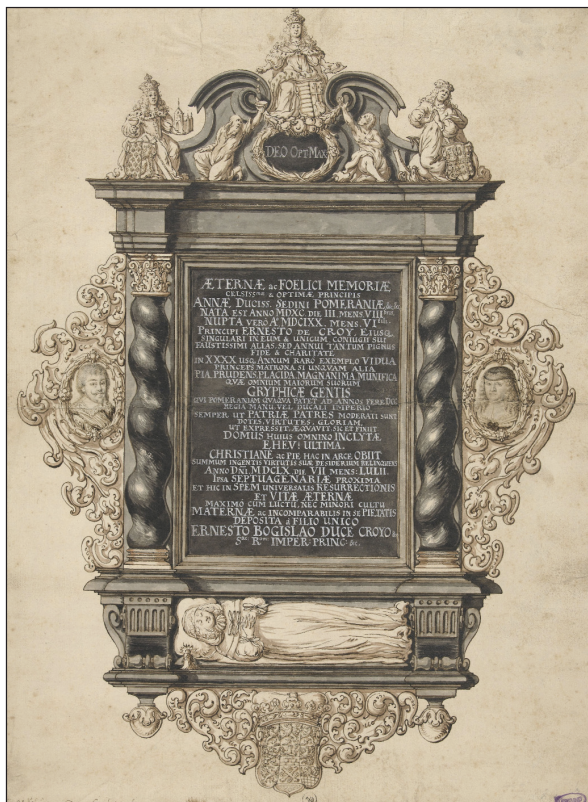 DEO OPT MAX
ÆTERNÆ ac FOELICI MEMORIÆ
CELSISS.mæ & OPTIMÆ PRINCIPIS
ANNÆ DUCISS. SEDINI POMERANIÆ &c. &c.
NATA EST ANNO MDXC. DIE III. MENS VIII bris
NUPTA VERO Aº MDCIXX. MENS. VI tilis
PRINCIPI ERNESTO DE CROY. EIUSQ.
SINGULARI IN EUM & UNICUM, CONIUGII SUI
FAUSTISSIMI ALIAS, SED ANNUI TANTUM PIGNUS
FIDE & CHARITATE
IN XXXX USQ. ANNUM RARO EXEMPLO VIDUA
PRINCEPS MATRONA SI UNQUAM ALIA
PIA, PRUDENS, PLACIDA, MAGNANIMA, MUNIFICA
QVÆ OMNIUM MAIORUM SUORUM
GRYPHICÆ GENTIS
QVI POMERANIAM QVAQVA PATET AD ANNOS FERE DCC
REGIA MANU VEL DUCALI IMPERIO
SEMPER UT PATRIÆ PATRES MODERATI SUNT
DOTES, VIRTUTES, GLORIAM,
UT EXPRESSIT, ÆQVAVIT SIC ET FINIIT
DOMUS HUIUS OMNINO INCLYTÆ
EHEV! ULTIMA.
CHRISTIANE ac PIE HAC IN ARCE OBIIT
SUMMUM INGENTIS VIRTUTIS SUÆ DESIDERIUM RELINQUENS
ANNO DNI MDCLX. DIE VII MENS: IULII.
IPSA SEPTUAGENARIÆ PROXIMA
ET HIC IN SPEM UNIVERSALIS RESURRECTIONIS
ET VITÆ ÆTERNÆ
MAXIMO CUM LUCTU, NEC MINORI CULTU
MATERNÆ ac INCOMPARABILIS IN SE PIETATIS
DEPOSITA á FILIO UNICO
ERNESTO BOGISLAO DUCE CROYO &c
S. R. IMPER: PRINC: &c.